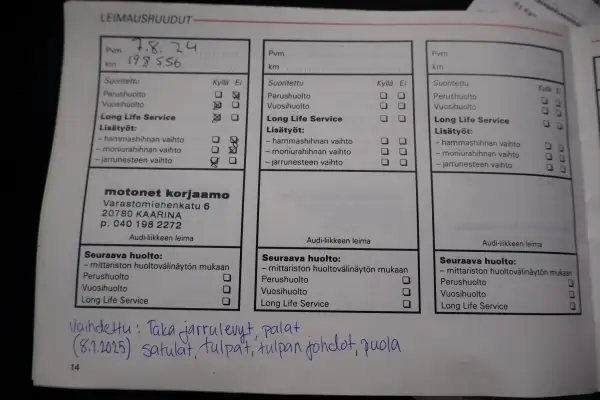 LEIMAUSRUUDUT
Pvm 7.8. 24
km 198 556
Suoritettu Kyllä Ei
Perushuolto
Vuosihuolto
Long Life Service
Lisätyöt:
– hammashihnan vaihto
– moniurahihnan vaihto
– jarrunesteen vaihto
motonet korjaamo
Varastomiehenkatu 6
20780 KAARINA
p. 040 198 2272
Audi-liikkeen leima
Seuraava huolto:
– mittariston huoltovälinäytön mukaan
Perushuolto
Vuosihuolto
Long Life Service
Pvm
km
Suoritettu Kyllä Ei
Perushuolto
Vuosihuolto
Long Life Service
Lisätyöt:
– hammashihnan vaihto
– moniurahihnan vaihto
– jarrunesteen vaihto
Audi-liikkeen leima
Seuraava huolto:
– mittariston huoltovälinäytön mukaan
Perushuolto
Vuosihuolto
Long Life Service
Pvm
km
Suoritettu Kyllä Ei
Perushuolto
Vuosihuolto
Long Life Service
Lisätyöt:
– hammashihnan vaihto
– moniurahihnan vaihto
– jarrunesteen vaihto
Audi-liikkeen leima
Seuraava huolto:
– mittariston huoltovälinäytön mukaan
Perushuolto
Vuosihuolto
Long Life Service
Vaihdettu: Taka jarrulevyt, palat
(8.1.2025) satulat, tulpat, tulpan johdot, puola
14